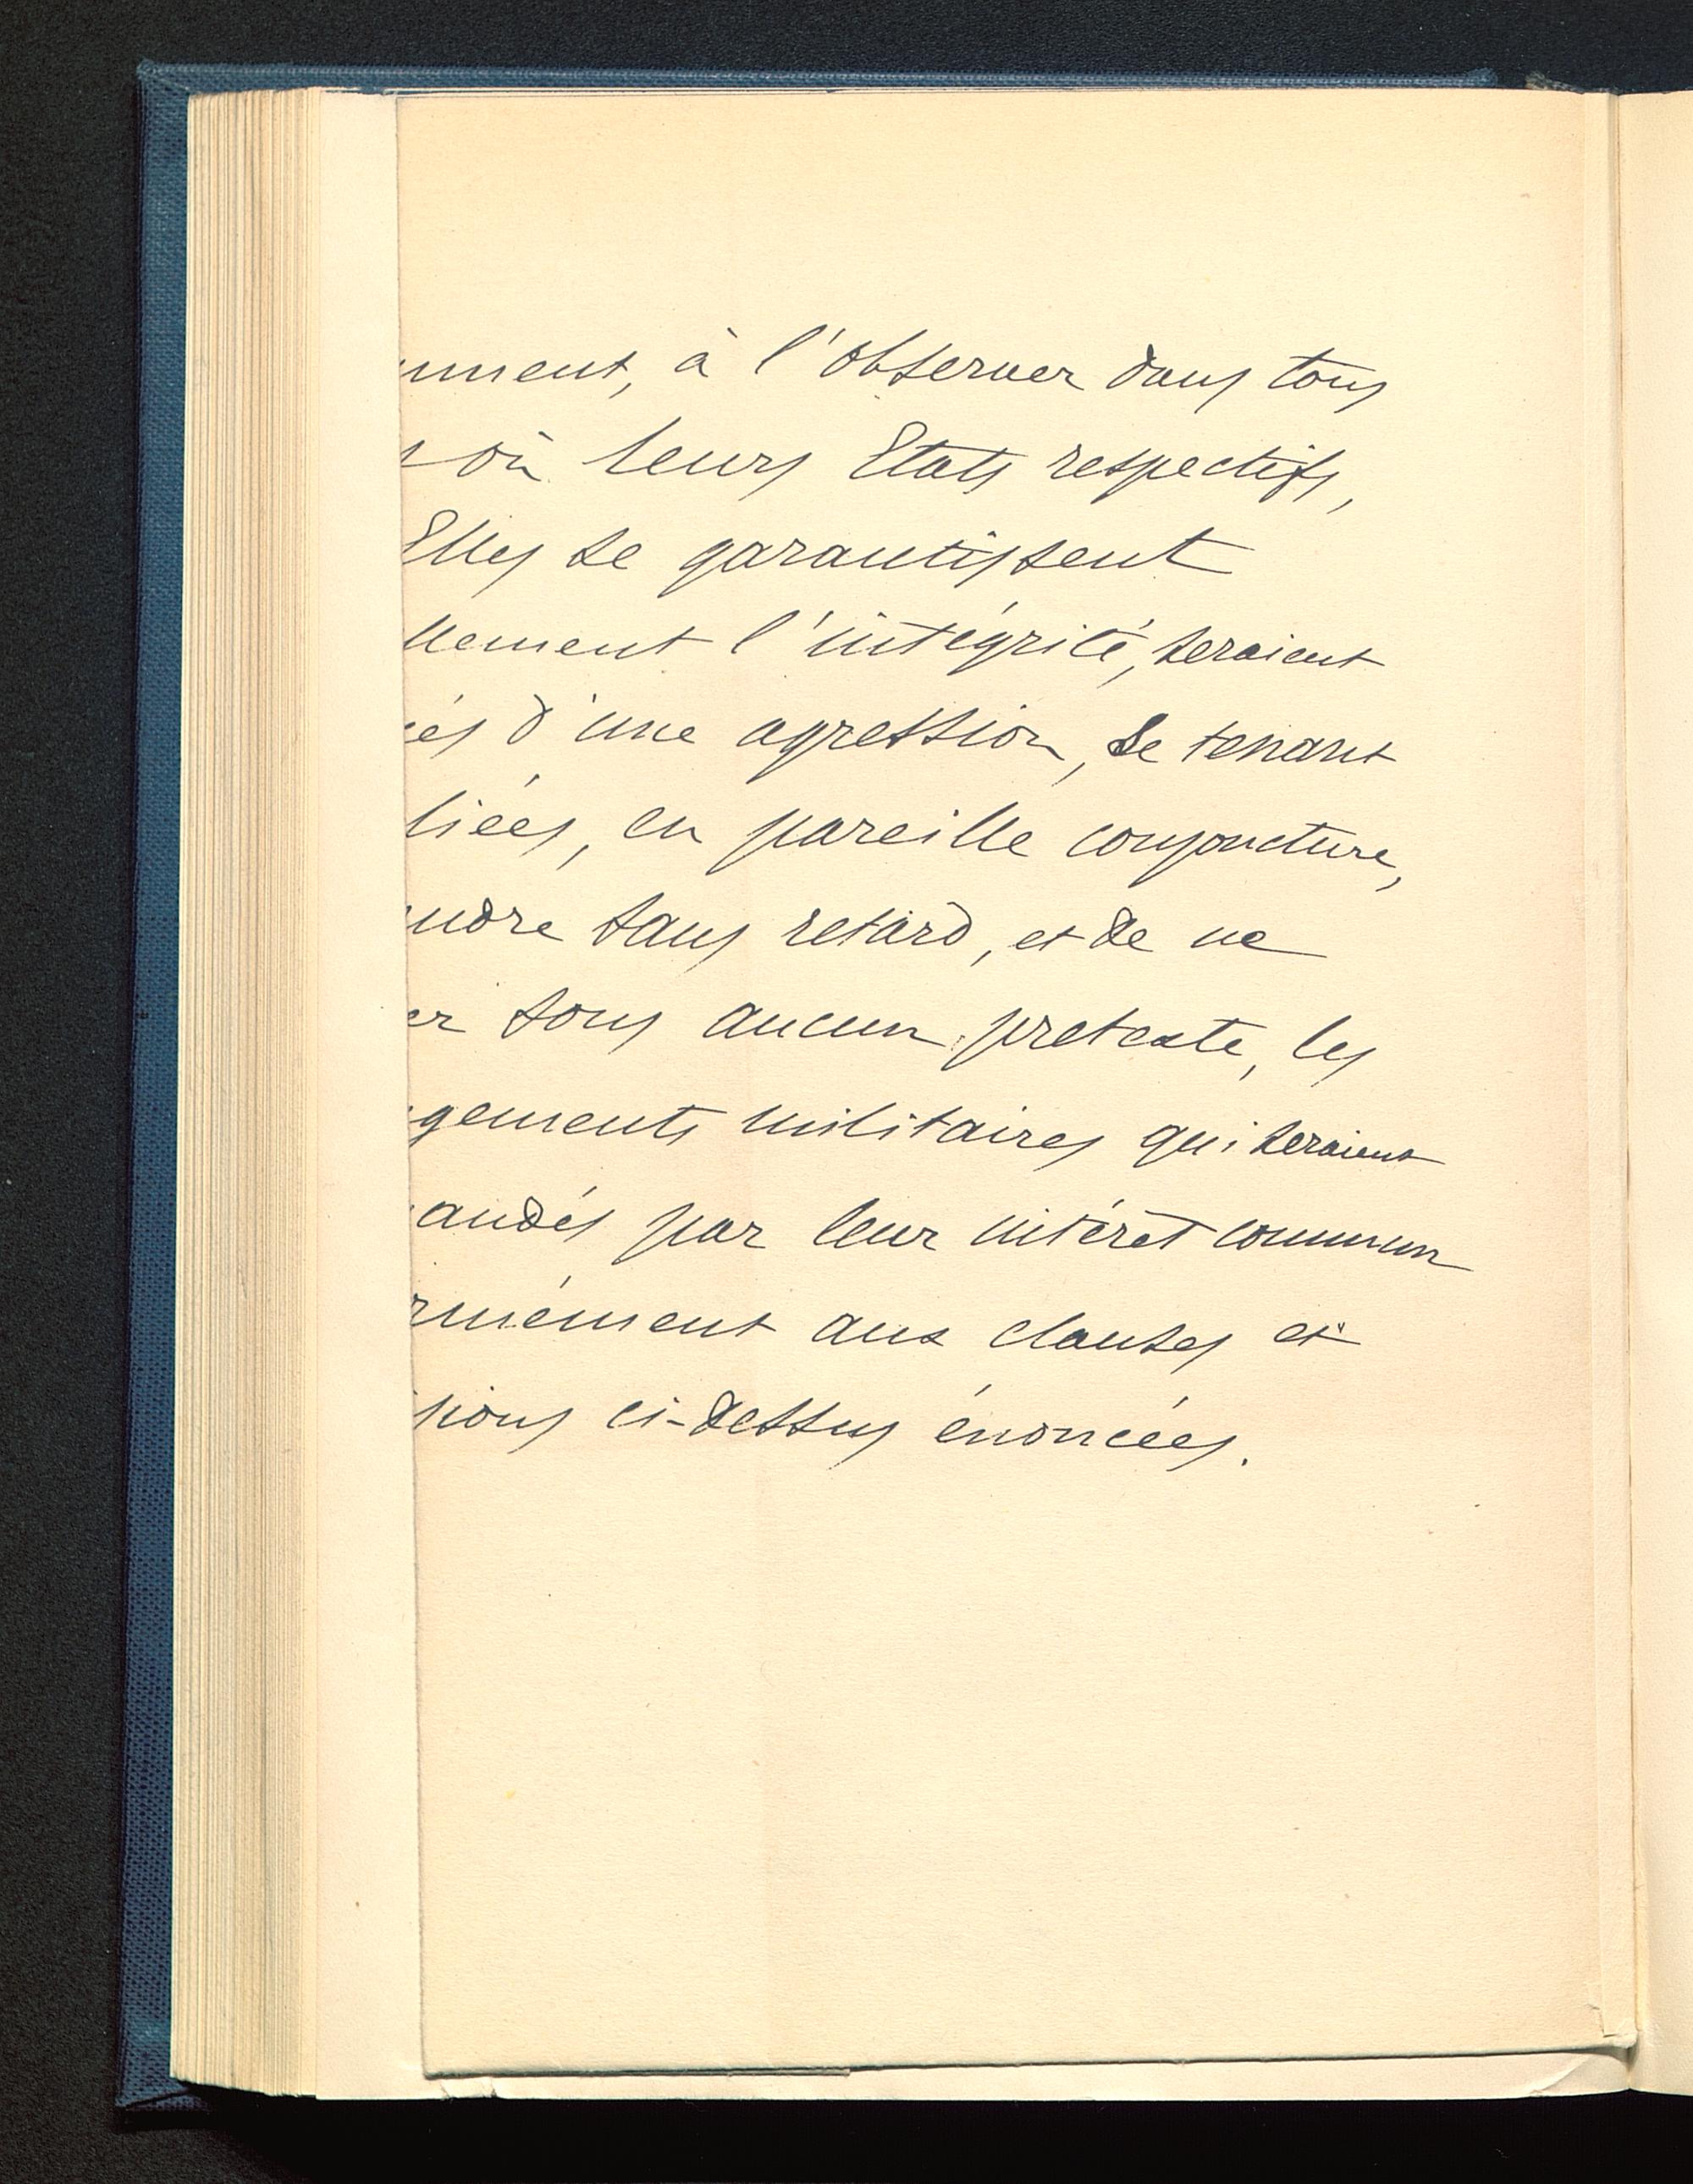 mment, à l'observer dans tous
où leurs Etats respectifs,
Elles se garantissent
llement l'intégrité, seraient
cés d'une agression, se tenant
liées, en pareille conjoncture,
ndre sans retard, et de ne
er sous aucun pretexte, les
gements militaires qui seraient
andés par leur intérêt commun
rmément aux clauses et
sions ci-dessus énoncées.